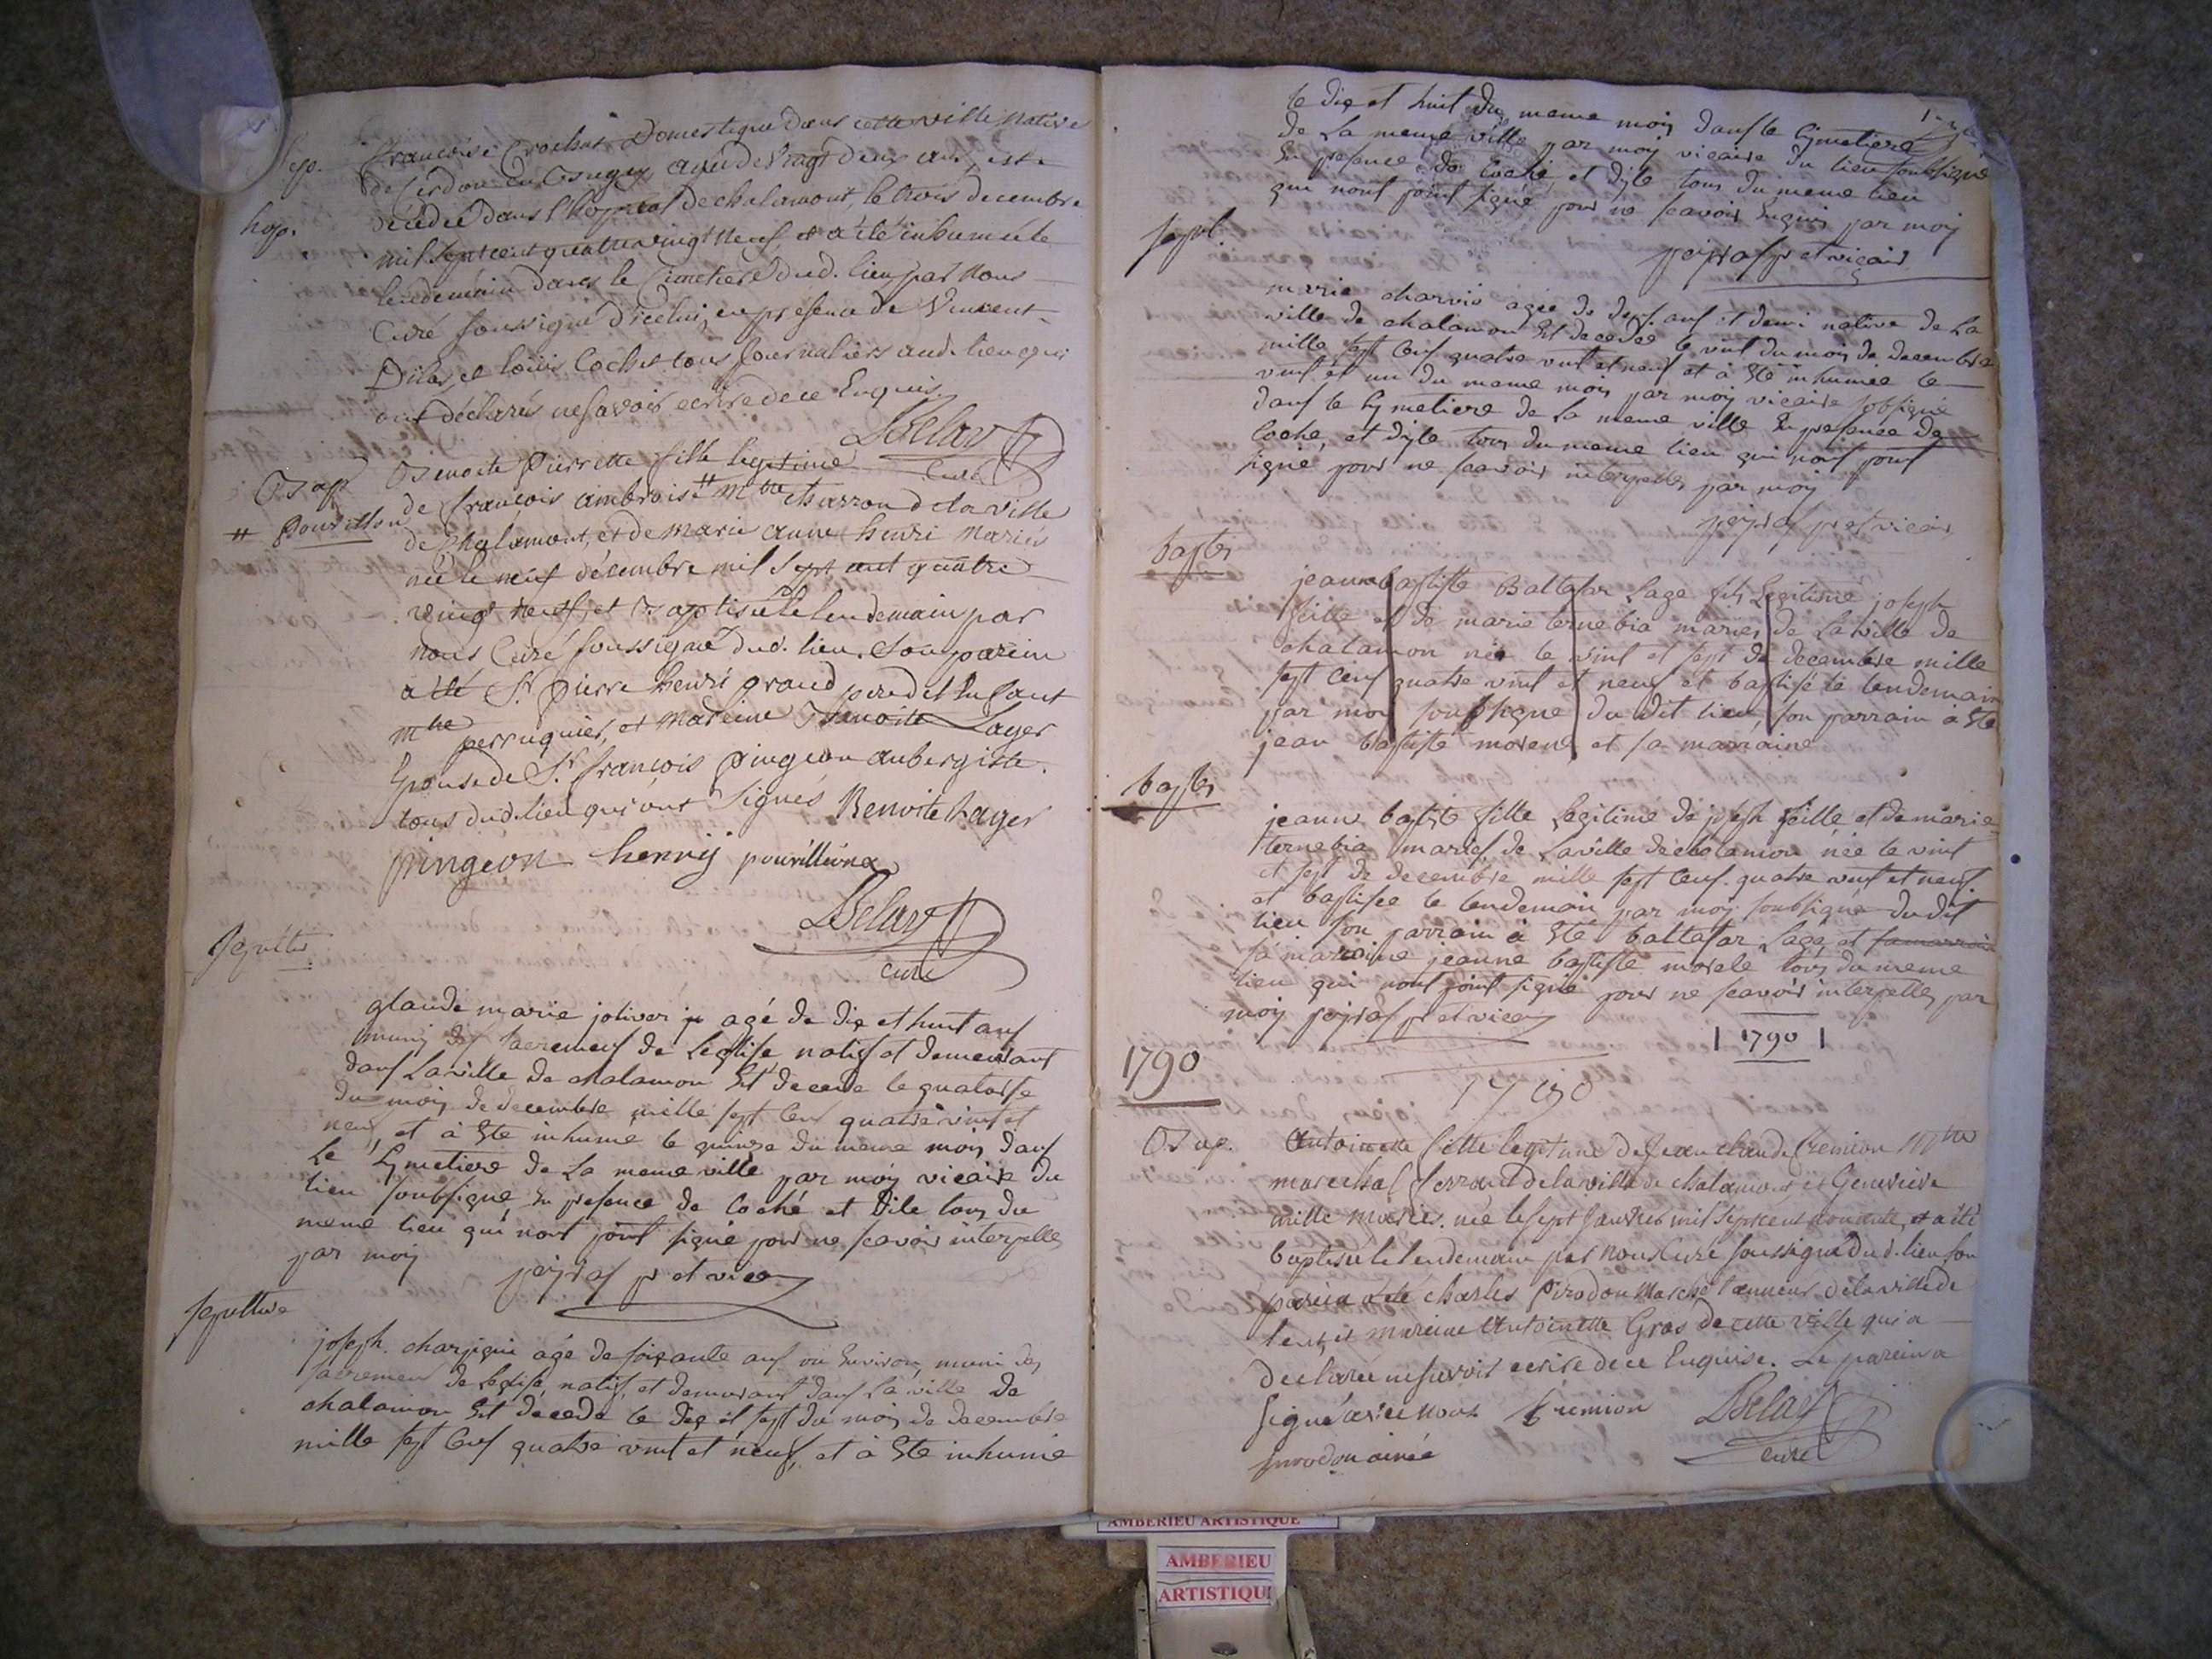 Sep.
hop.
francoise Crochat Domestique dans cette ville native
de Cerdon en Bugey, agée de vingt deux ans, est
décédée dans l'hopital de chalamont, le trois decembre
mil sept cent quatre vingt neuf, et a été inhumée le
lendemain dans le Cimetiere dud. lieu par nous
Curé soussigné d'icelui, en presence de Vincent
Dile, et loüis Cochet tous journaliers aud. lieu qui
ont déclarés ne savoir ecrire de ce Enquis
Delav
Curé
Bap
# Pourillon
Benoite Pierrette fille legitime
de françois ambroise # mtre charron de la ville
de Chalamont, et de marie anne henri mariés
née le neuf décembre mil sept cent quatre
vingt neuf, et Baptisée le lendemain par
nous Curé soussigné dud. lieu. Son parein
a été Sr. pierre henri grand pere de l'enfant
mtre perruquier, et mareine Benoite Lager
Epouse de Sr. françois pingeon aubergiste.
tous dud. lieu qui ont signés Benoite Lager
pingeon henrij pourilliона
Delav
curé
Sepultes
glaude marie jolivar agé de dix et huit ans
muni des sacremens de Leglise natif et demeurant
dans La ville de chalamon Est decede le quatorse
du mois de decembre mille sept Cens quatre vint et
neuf, et à Eté inhumé le quinze du meme mois dans
Le Cymetiere de La meme ville par moy vicaire du
lieu soubsigné En presence de Coché et Dile tous du
meme lieu qui nont point signé pour ne scavoir interpelles
par moy
pejras pr et vic
Sepulture
joseph. charpigni agé de soixante ans ou Environ, muni des
sacremens de Leglise, natif, et demeurant dans La ville de
chalamon Est decede le dix et sept du mois de decembre
mille sept Cens quatre vint et neuf, et à Eté inhumé
le dix et huit du meme mois dans le Cymetiere
de La meme ville par moy vicaire du lieu soubsigné
En presence de Coché, et dyle tous du meme lieu
qui nont point signé pour ne scavoir Enquis par moy
pejras pr et vicair
sepul.
marie charvis agée de deux ans et demi native de La
ville de chalamon Est decedee le vint du mois de decembre
mille sept Cens quatre vint et neuf et à Eté inhumée le
vint et un du meme mois par moy vicaire sobsigné
dans le Cymetiere de La meme ville En presence de
Coche, et dyle tous du meme lieu qui nont point
signé pour ne scavoir interpelles par moy
pejras pr et vicair
baptes
jeanne baptiste Baltasar Lage fils Legitime joseph
feille et de marie ternebia maries de La ville de
chalamon née le vint et sept de decembre mille
sept Cens quatre vint et neuf et baptisé le lendemain
par moy soubsigne du dit lieu, son parrain à Eté
jean baptiste morene et sa marraine
baptes
jeanne baptiste fille Legitime de joseph feille et de marie
ternebia maries de La ville de chalamon née le vint
et sept de decembre mille sept Cens quatre vint et neuf
et baptisee le lendemain par moy soubsigné du dit
lieu son parrain à Eté baltasar Lage, et sa marrain
sa marraine jeanne baptiste morele tous du meme
lieu qui nont point signé pour ne scavoir interpelles par
moy pejras pr et vicair
| 1790 |
1790
1790
Bap.
Antoinette fille legitime de Jean claude fremion Mtre
marechal ferrant de la ville de chalamont et Genevieve
mille mariés. née le sept Janvier mil sept cent nonante, et a été
baptisée le lendemain par nous Curé soussigné dud. lieu son
parein a été charles Pirodon Marchd tanneur de la ville de
lent, et mareine Antoinette Gras de cette ville qui a
declarée ne savoir ecrire de ce Enquise. Le parein a
signé avec nous fremion
Delav
pirodon ainée
curé
AMBERIEU ARTISTIQUE
AMBERIEU
ARTISTIQU